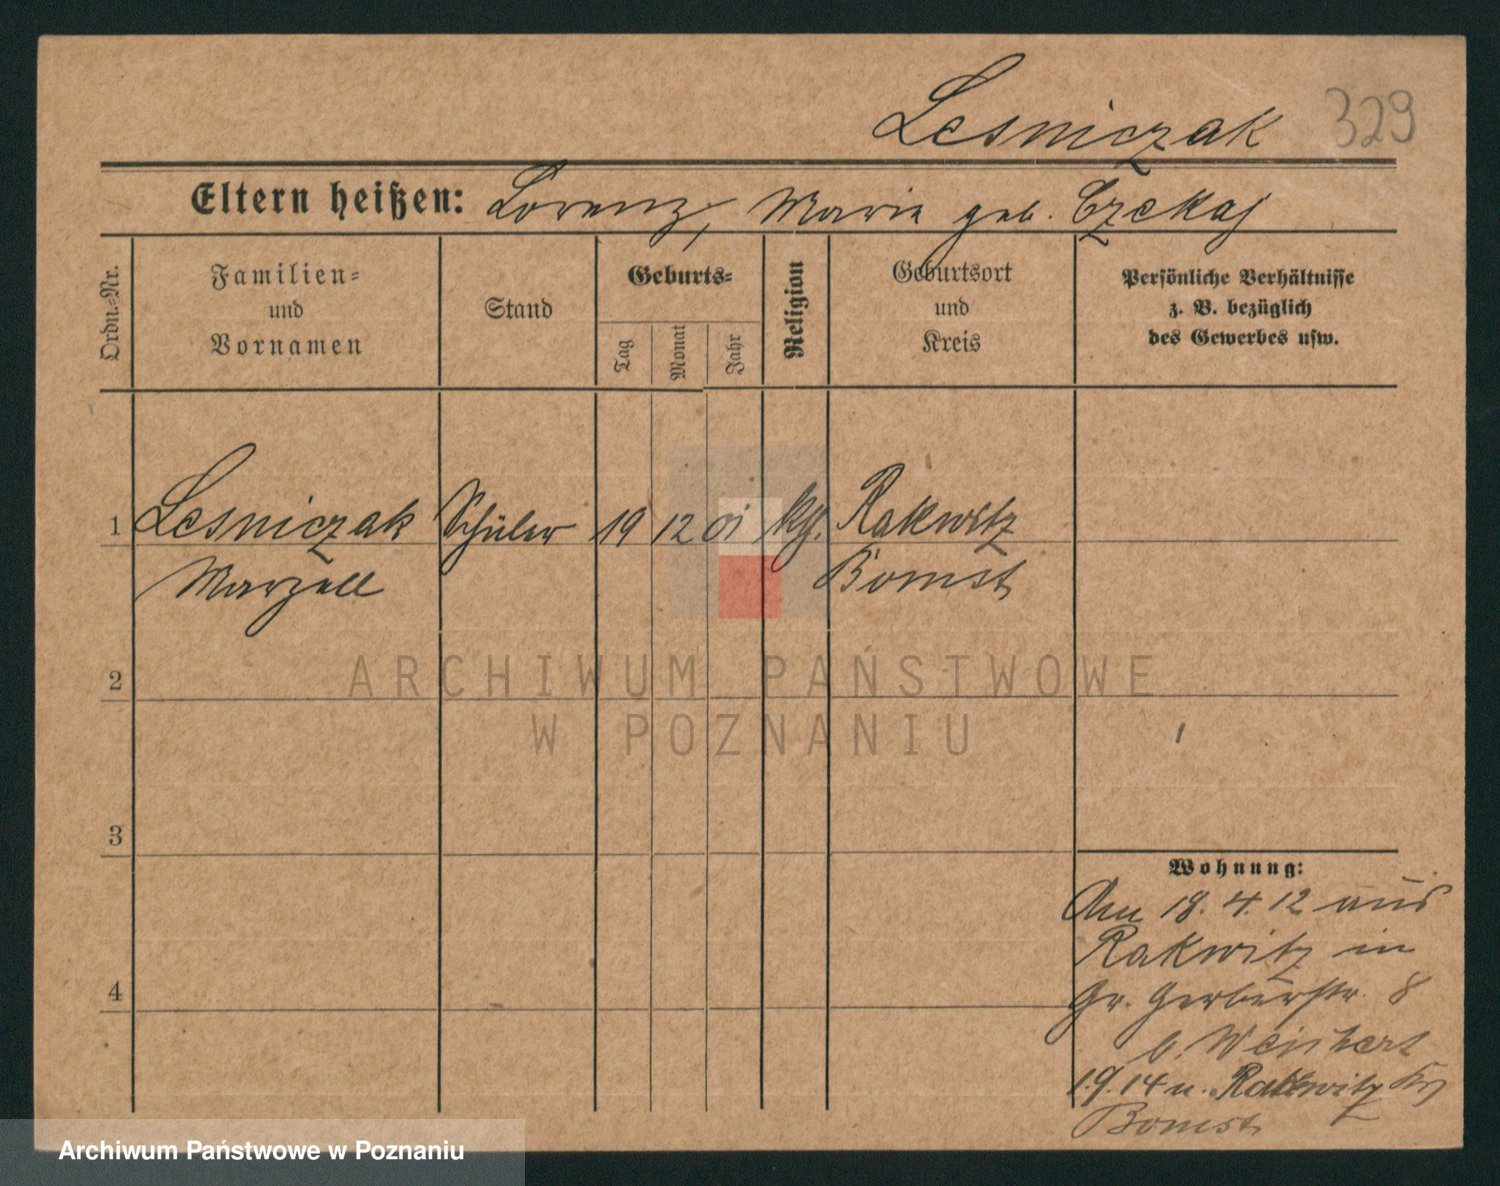 Lesniczak 329
Eltern heißen: Lorenz, Marie geb. Czekaj
Ordn.=Nr.
Familien=
und
Vornamen
Stand
Geburts=
Tag
Monat
Jahr
Religion
Geburtsort
und
Kreis
Persönliche Verhältnisse
z. B. bezüglich
des Gewerbes usw.
1 Lesniczak Schüler 19 12 01 kg. Rakwitz
Marzell Bomst
2
3
4
Wohnung:
Am 18. 4. 12 aus
Rakwitz in
Gr. Gerberstr. 8
b. Weichert
1.9.14 n. Rakwitz Kr
Bomst
ARCHIWUM PAŃSTWOWE
W POZNANIU
Archiwum Państwowe w Poznaniu